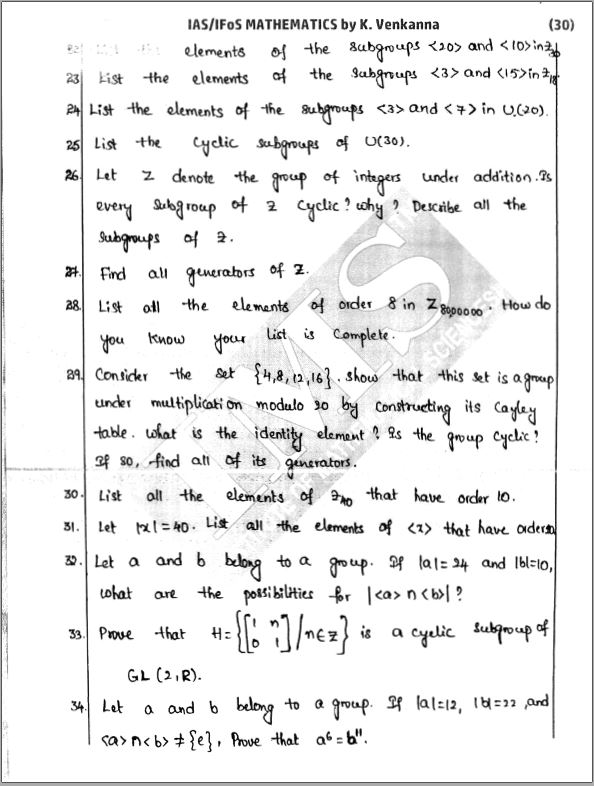 IAS/IFoS MATHEMATICS by K. Venkanna (30)
22. elements of the subgroups <20> and <10> in Z30
23 List the elements of the subgroups <3> and <15> in Z18
24 List the elements of the subgroups <3> and <7> in U(20).
25 List the cyclic subgroups of U(30).
26. Let Z denote the group of integers under addition. Is
every subgroup of Z cyclic? why? Describe all the
subgroups of Z.
27. Find all generators of Z.
28. List all the elements of order 8 in Z8000000. How do
you know your list is complete.
29. Consider the set {4,8,12,16}. show that this set is a group
under multiplication modulo 20 by constructing its Cayley
table. what is the identity element? Is the group cyclic?
If so, find all of its generators.
30. List all the elements of Z40 that have order 10.
31. Let |x|=40. List all the elements of <x> that have order 10
32. Let a and b belong to a group. If |a|=24 and |b|=10,
what are the possibilities for |<a>∩<b>|?
33. Prove that H={[1 n / 0 1] / n∈Z} is a cyclic subgroup of
GL(2,R).
34. Let a and b belong to a group. If |a|=12, |b|=22, and
<a>∩<b>≠{e}, Prove that a⁶=b¹¹.
IMS